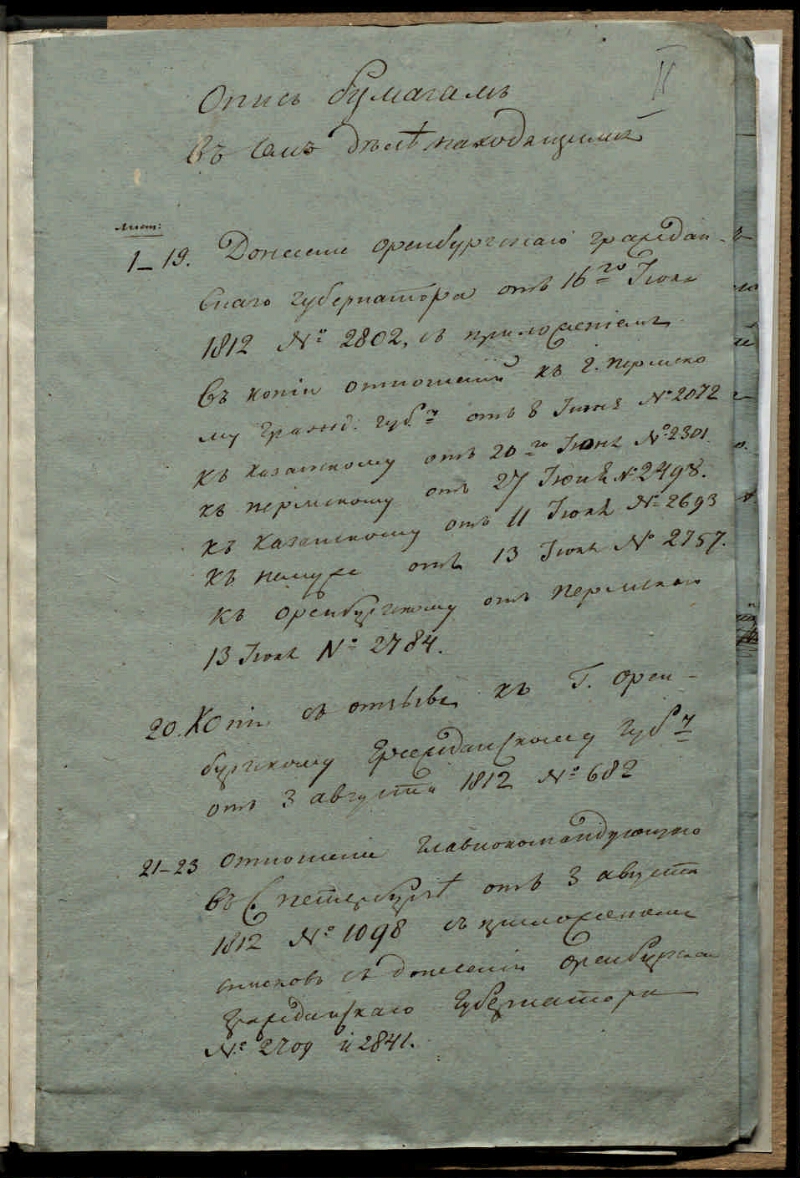 II
Опись бумагамъ
въ семъ дѣлѣ находящимся
лист:
1–19. Донесенiе оренбургскаго граждан-
скаго губернатора отъ 16го Iюля
1812 № 2802, съ приложенiемъ
въ копiи отношенiй къ г. пермско
му гражд: губ.ру отъ 8 Iюня № 2072
къ казанскому отъ 20го Iюня № 2301.
къ пермскому отъ 27 Iюня № 2498.
къ казанскому отъ 11 Iюля № 2693
къ нему же отъ 13 Iюля № 2757.
къ оренбургскому отъ пермскаго
13 Iюля № 2784.
20. Копiя съ отзыва къ Г. орен-
бургскому гражданскому губ.ру
отъ 3 августа 1812 № 682
21–23 отношенiе главнокомандующаго
въ С. петербургѣ отъ 3 августа
1812 № 1098 съ приложенiемъ
списковъ съ донесенiй оренбургскаго
гражданскаго губернатора
№ 2709 и 2841.